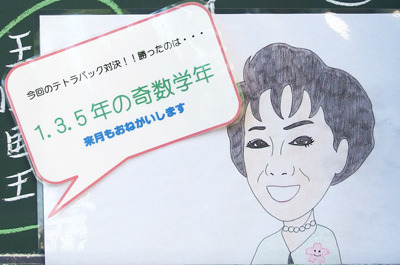 王
国
王
今回のテトラパック対決！！勝ったのは・・・
1.3.5年の奇数学年
来月もおねがいします